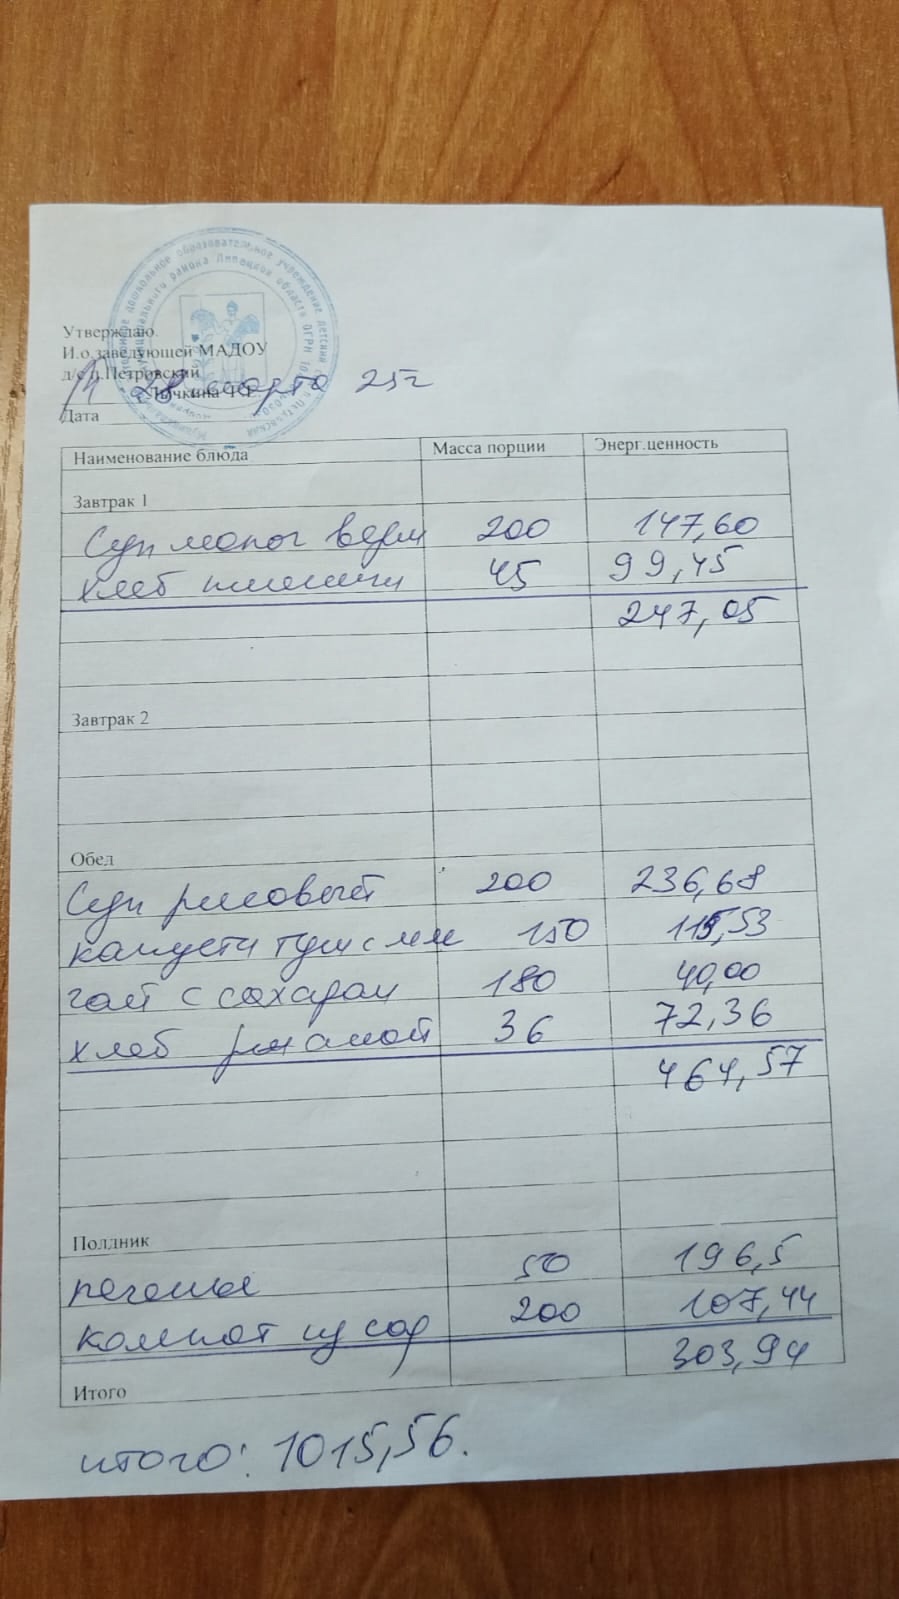 Утверждаю.
И.о.заведующей МАДОУ
д/с п.Петровский
28 марта 25г
Дата
Наименование блюда Масса порции Энерг.ценность
Завтрак 1
Суп молоч верм 200 147,60
хлеб пшенич 45 99,45
247,05
Завтрак 2
Обед
Суп рисовый 200 236,68
капуста туш с мяс 150 115,53
чай с сахаром 180 40,00
хлеб ржаной 36 72,36
464,57
Полдник
печенье 50 196,5
компот из сар 200 107,44
303,94
Итого
итого: 1015,56.